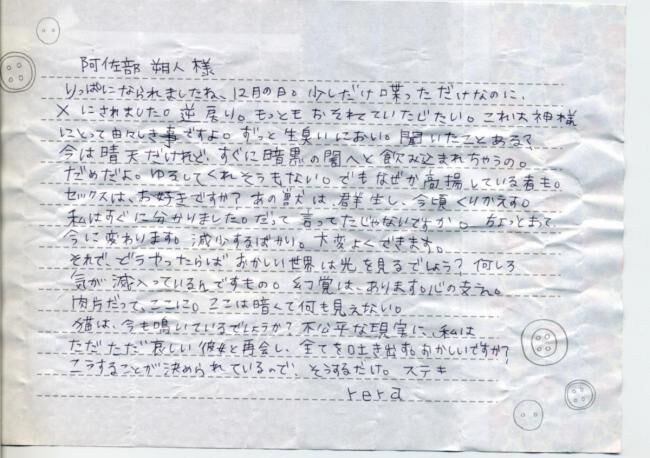 阿佐部 朔人 様
りっぱになられましたね、12月の日。少しだけ喋っただけなのに、
×にされました。逆戻り。もっともおそれていたじたい。これは神様
にとって由々しき事ですよ。ずっと生臭いにおい。聞いたことある?
今は晴天だけれど、すぐに暗黒の闇へと飲み込まれちゃうの。
だめだよ。ゆるしてくれそうもない。でもなぜか高揚している者も。
セックスは、お好子ですか?あの獣は、群生し、今頃くりかえす。
私はすぐに分かりました。だって言ってたじゃないですか。ちょっとまって、
今に変わります。減少するばかり。大変よくできます。
それで、どうやったらばおかしい世界は光を見るでしょう?何しろ
気が滅入っているんですもの。幻覚は、あります。心の支え。
肉片だって、ここに。ここは暗くて何も見えない。
猫は、今も鳴いているでしょうか?不公平な現実に、私は
ただただ哀しい彼女と再会し、全てを吐き出す。おかしいですか?
こうすることが決められているので、そうするだけ。ステキ
rera